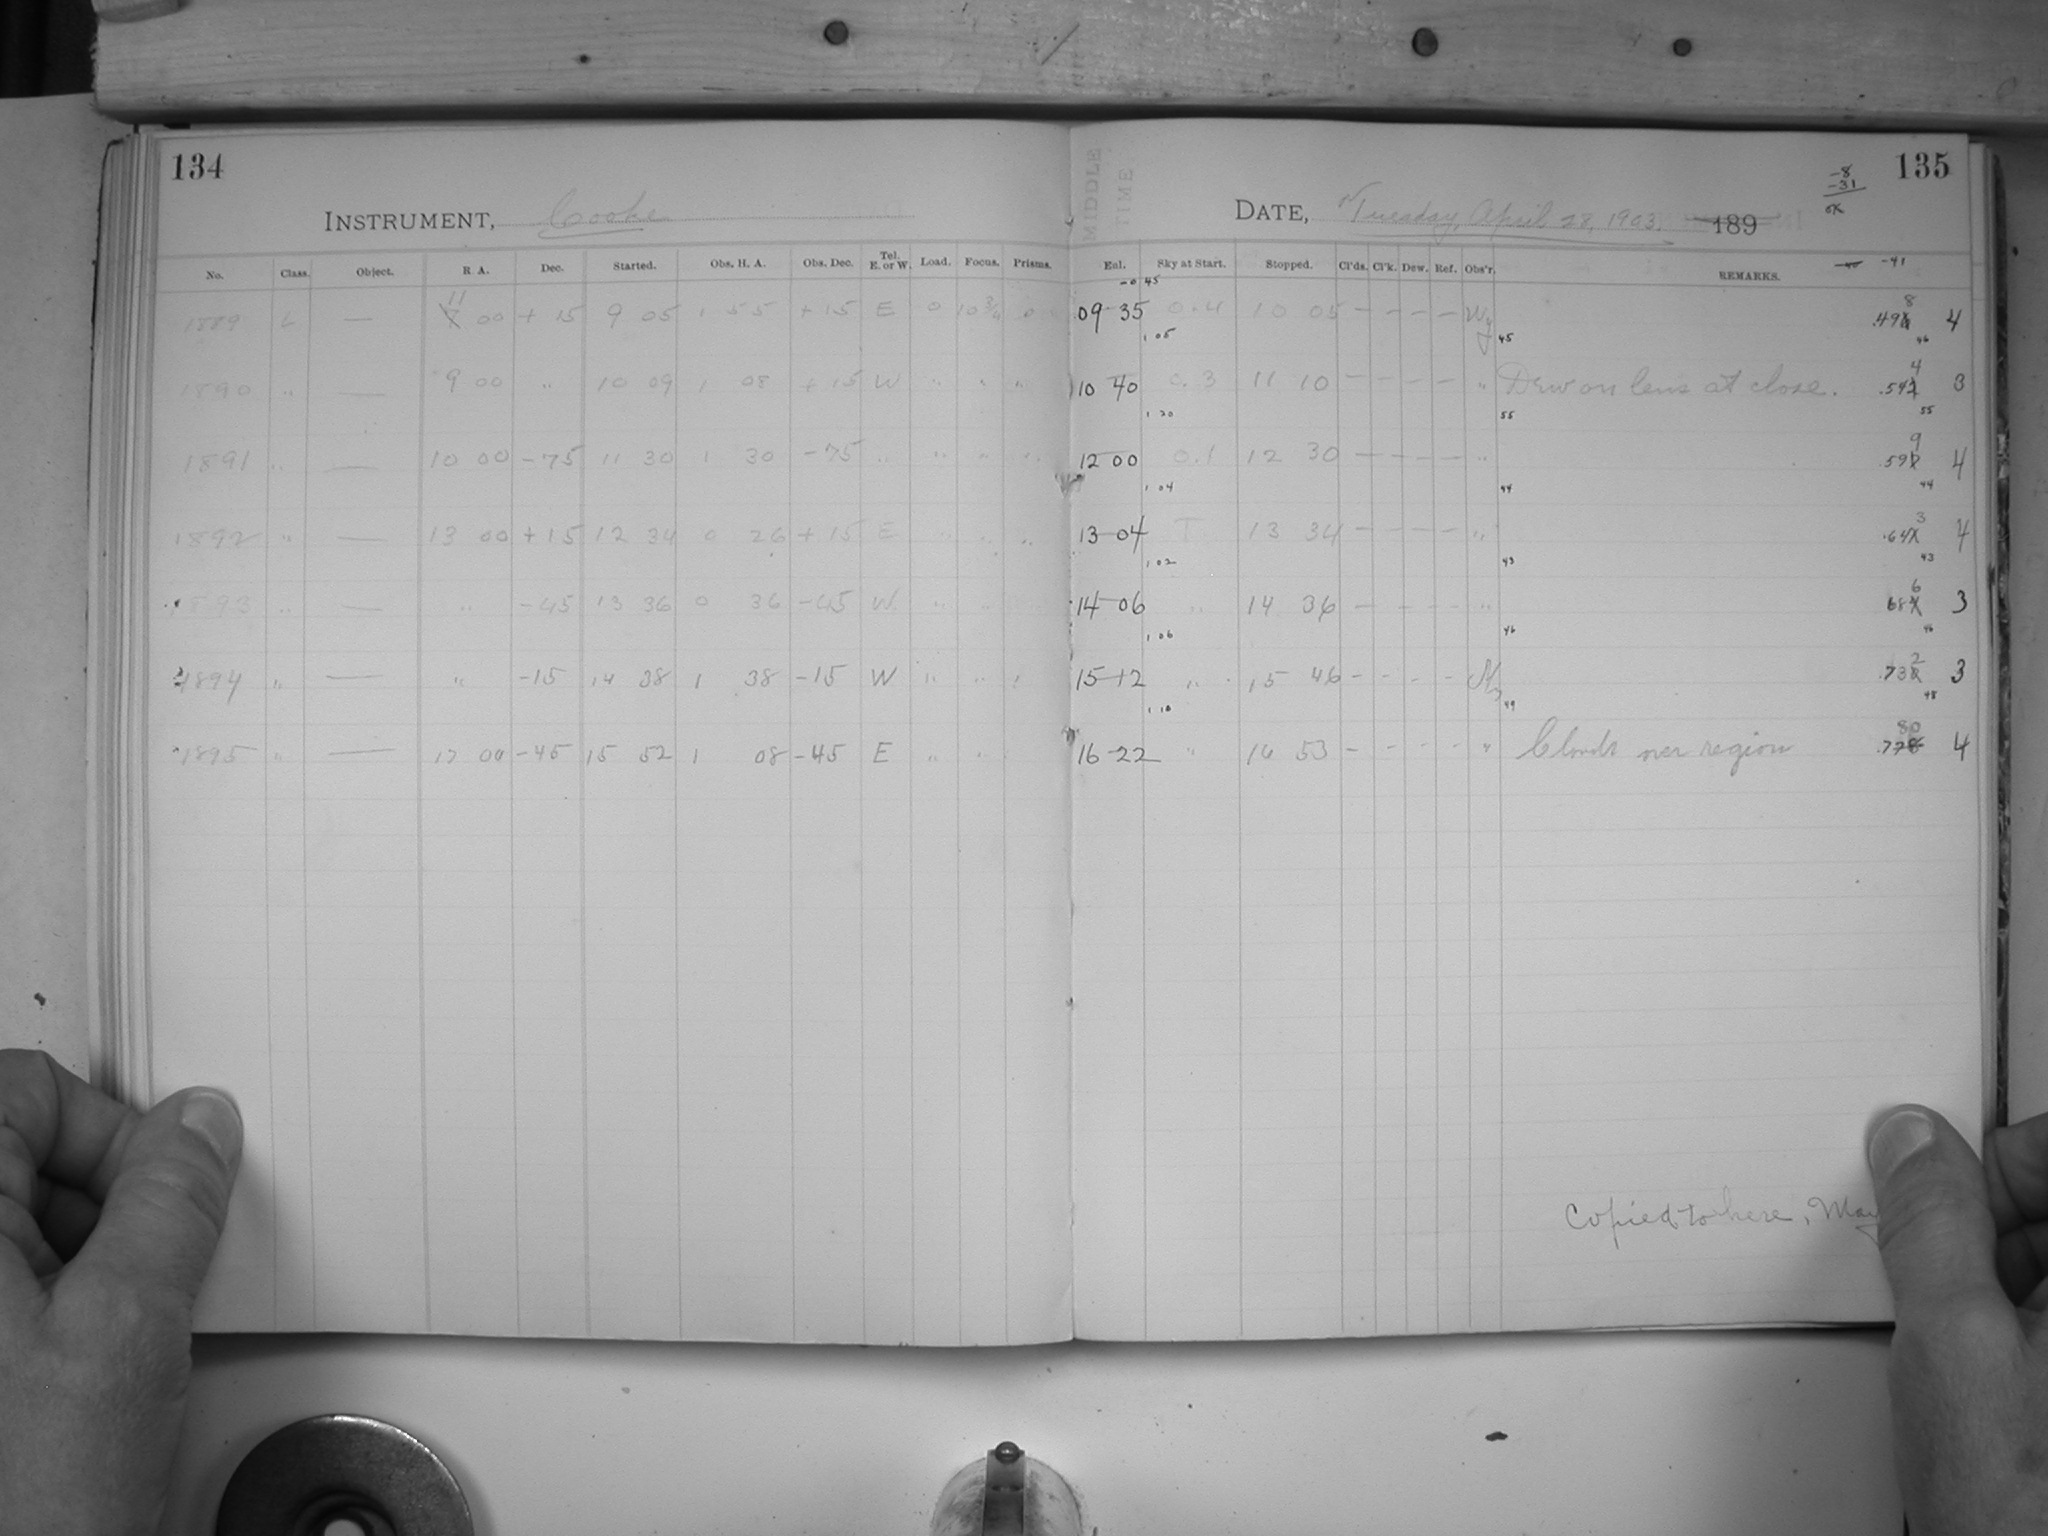 134
INSTRUMENT, Cooke
No. Class. Object. R. A. Dec. Started. Obs. H. A. Obs. Dec. Tel. E. or W. Load. Focus. Prisms.
1889 L — 11 00 + 15 9 05 1 55 + 15 E 0 10 3/4 0
1890 " — 9 00 " 10 09 1 08 + 15 W " " "
1891 " — 10 00 - 75 11 30 1 30 - 75 " " " "
1892 " — 13 00 + 15 12 34 0 26 + 15 E " " "
1893 " — " - 45 13 36 0 36 - 45 W " "
1894 " — " - 15 14 38 1 38 - 15 W " "
1895 " — 17 00 - 45 15 52 1 08 - 45 E " "
135
-8
-31
MIDDLE
TIME
DATE, Tuesday, April 28, 1903. 189
Enl. Sky at Start. Stopped. Cl'ds. Cl'k. Dew. Ref. Obs'r. REMARKS. -41
45
09 35 0.4 10 05 — — — — 8 .49 4
1 05 45 46
10 40 0.3 11 10 — — — — " Dew on lens at close. 4 .54 3
1 20 55 55
12 00 0.1 12 30 — — — — " 9 .59 4
1 04 44 44
13 04 T 13 34 — — — — " 3 .64 4
1 02 43 43
14 06 " 14 36 — — — — " 6 68 3
1 06 46 46
15 12 " 15 46 — — — — 2 .73 3
1 10 49 48
16 22 " 16 53 — — — — " Clouds over region 80 .778 4
Copied to here, May